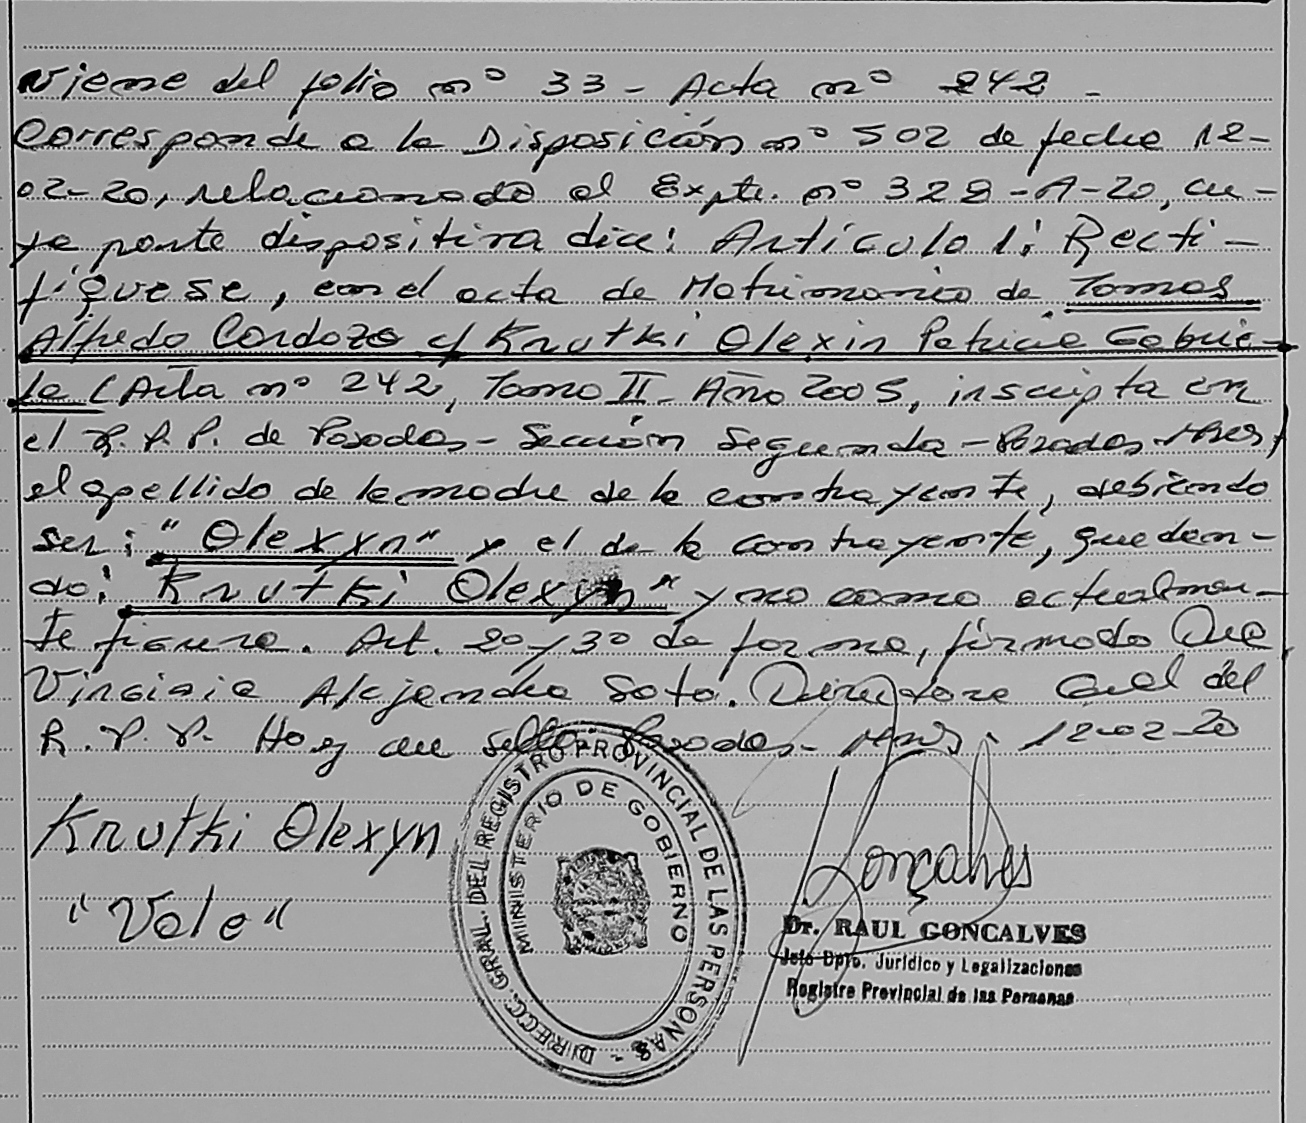 Viene del folio nº 33 - Acta nº 242 -
Corresponde a la Disposición nº 502 de fecha 12-
02-20, relacionado al Expte. nº 328-A-20, cu-
ya parte dispositiva dice: Artículo 1: Recti-
fíquese, en el acta de Matrimonio de Tomas
Alfredo Cardozo c/ Krutki Olexin Patricia Gabrie-
la (Acta nº 242, Tomo II - Año 2005, inscripta en
el R.P.P. de Posadas - Sección Segunda - Posadas Mnes,
el apellido de la madre de la contrayente, debiendo
ser: "Olexyn" y el de la contrayente, quedan-
do: Krutki Olexyn" y no como actualmen-
te figura. Art. 2º y 3º de forma, firmado Dra
Virginia Alejandra Soto. Directora Gral del
R.P.P. Hay un sello. Posadas - Mnes. 12-02-20
Krutki Olexyn
"Vale"
DIRECC. GRAL. DEL REGISTRO PROVINCIAL DE LAS PERSONAS -
MINISTERIO DE GOBIERNO
Gonçalves
Dr. RAUL GONCALVES
Jefe Dpto. Jurídico y Legalizaciones
Registro Provincial de las Personas